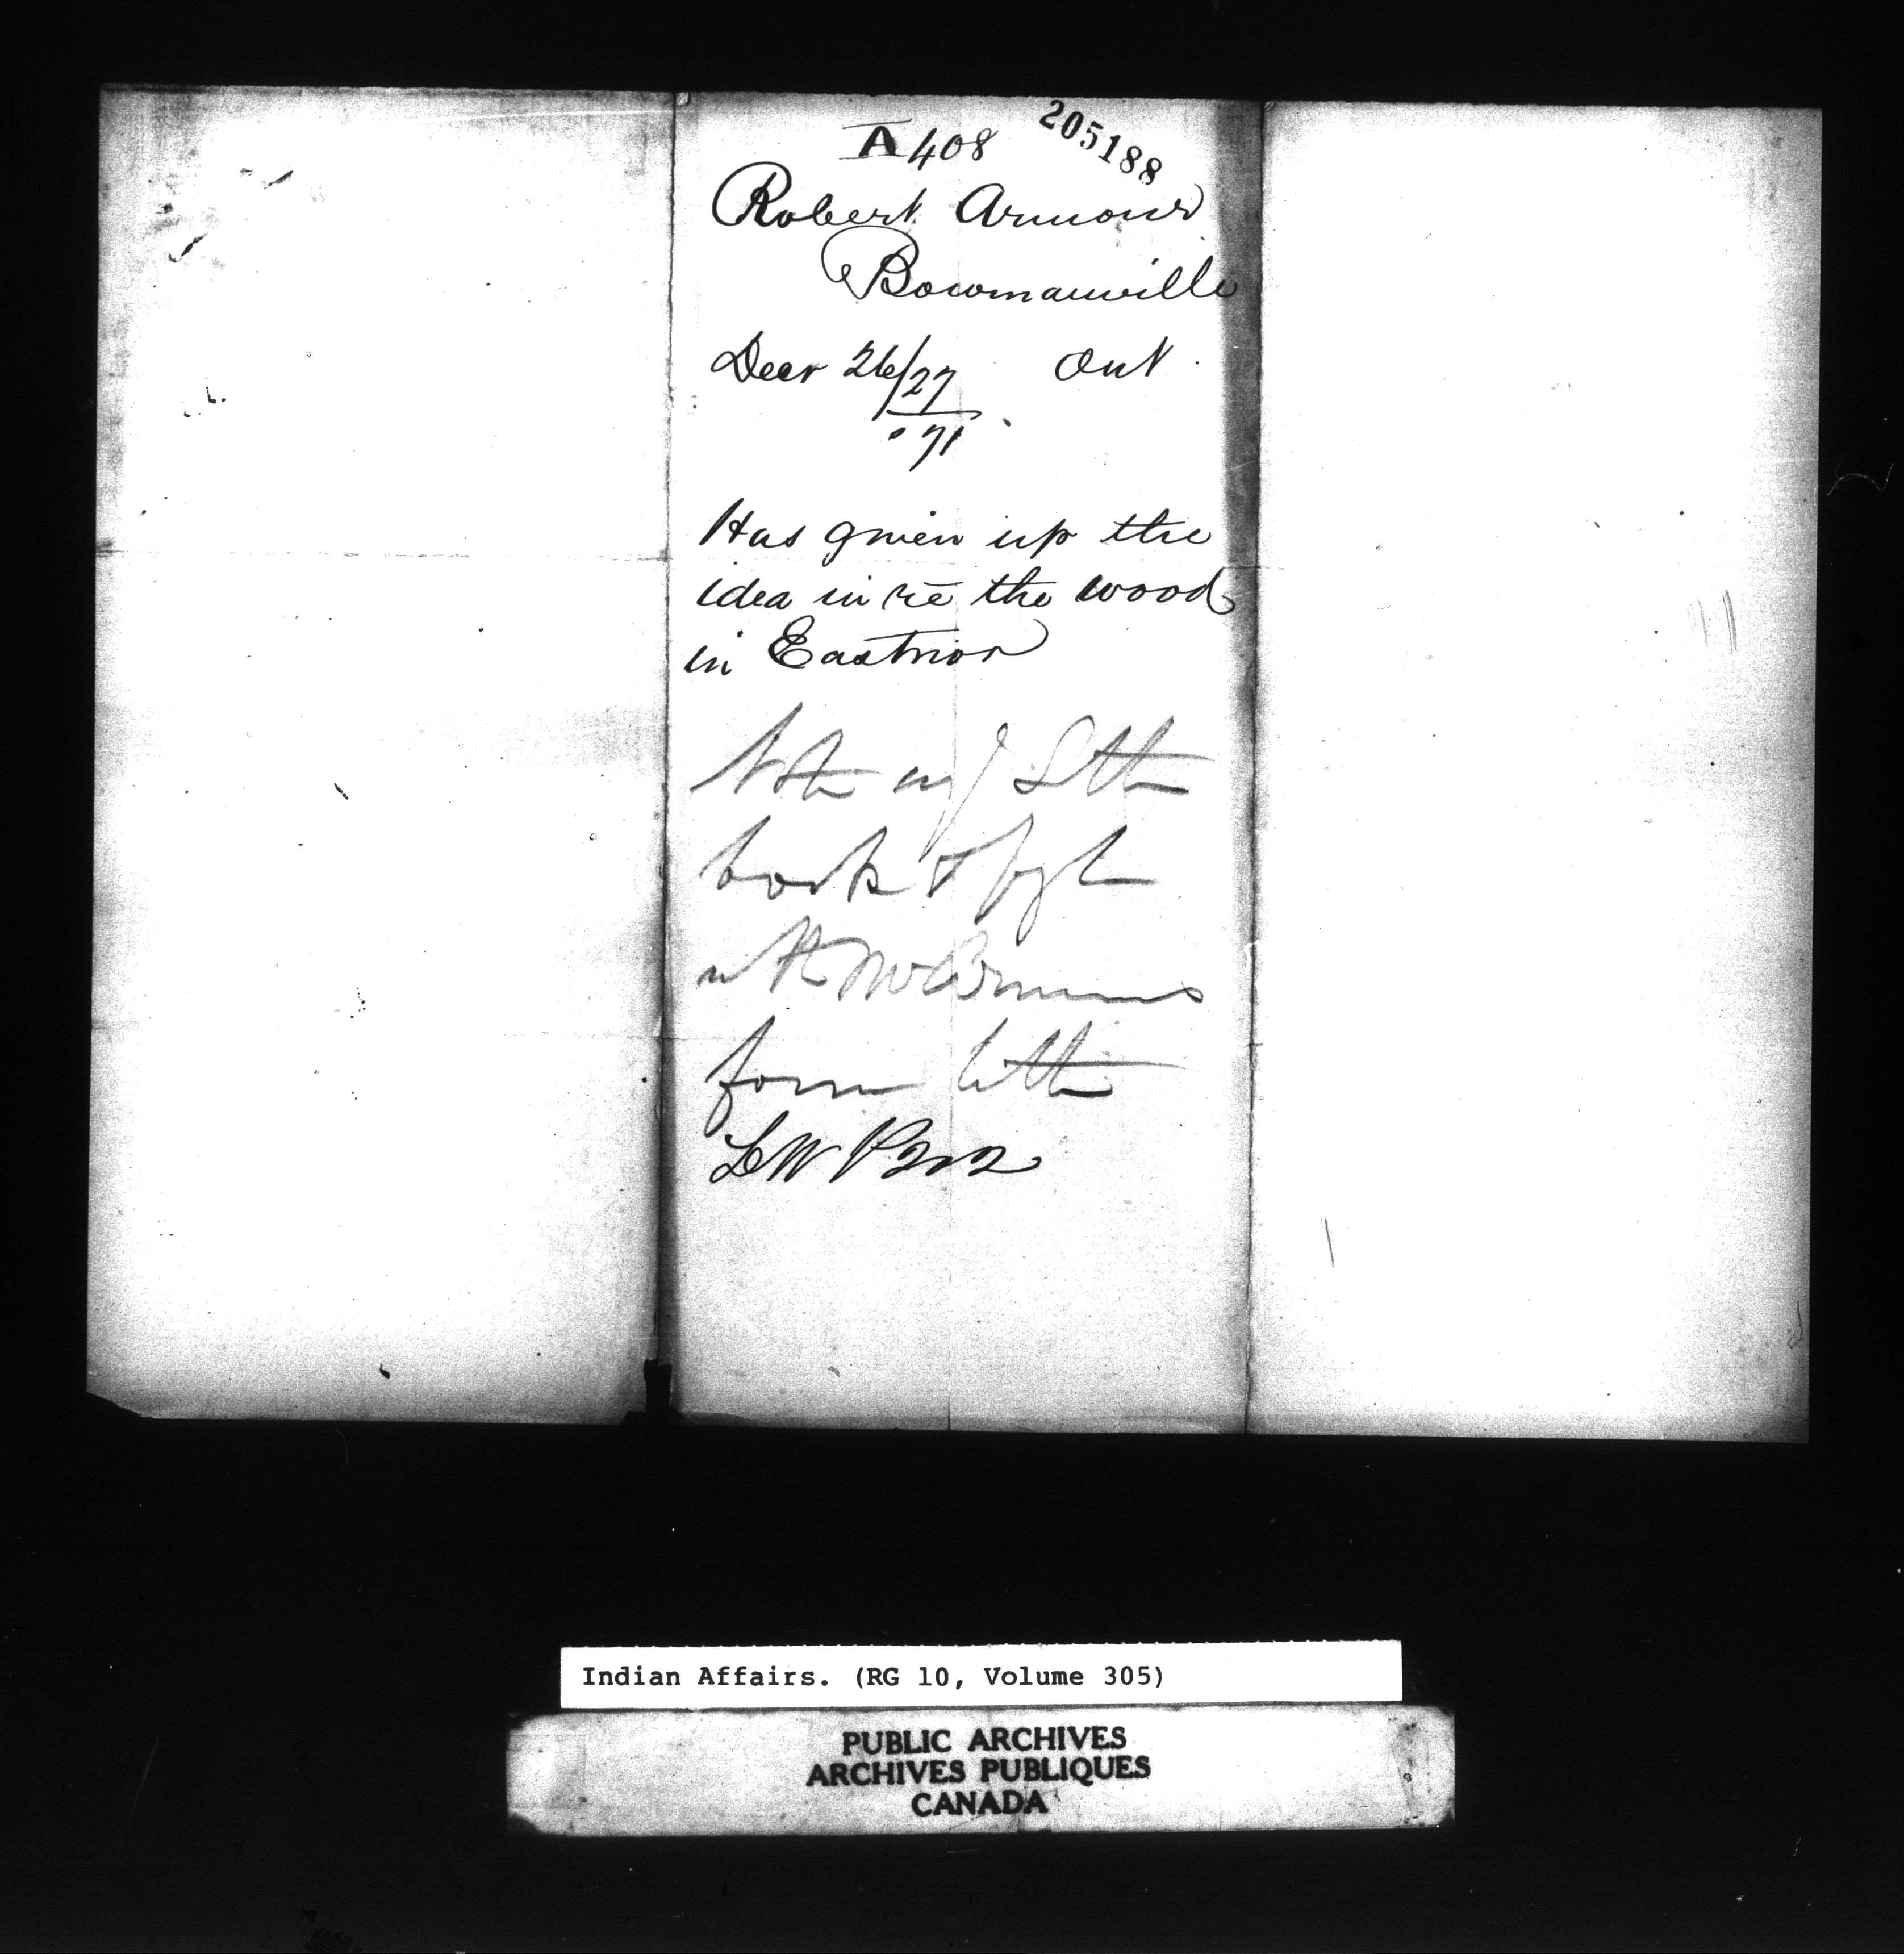 A 408
205188
Robert Armour
Bowmanville
Decr 26/27 Ont.
71
Has given up the
idea in re the wood
in Eastnor
Note in Letter
book &
with
former letter
Indian Affairs. (RG 10, Volume 305)
PUBLIC ARCHIVES
ARCHIVES PUBLIQUES
CANADA